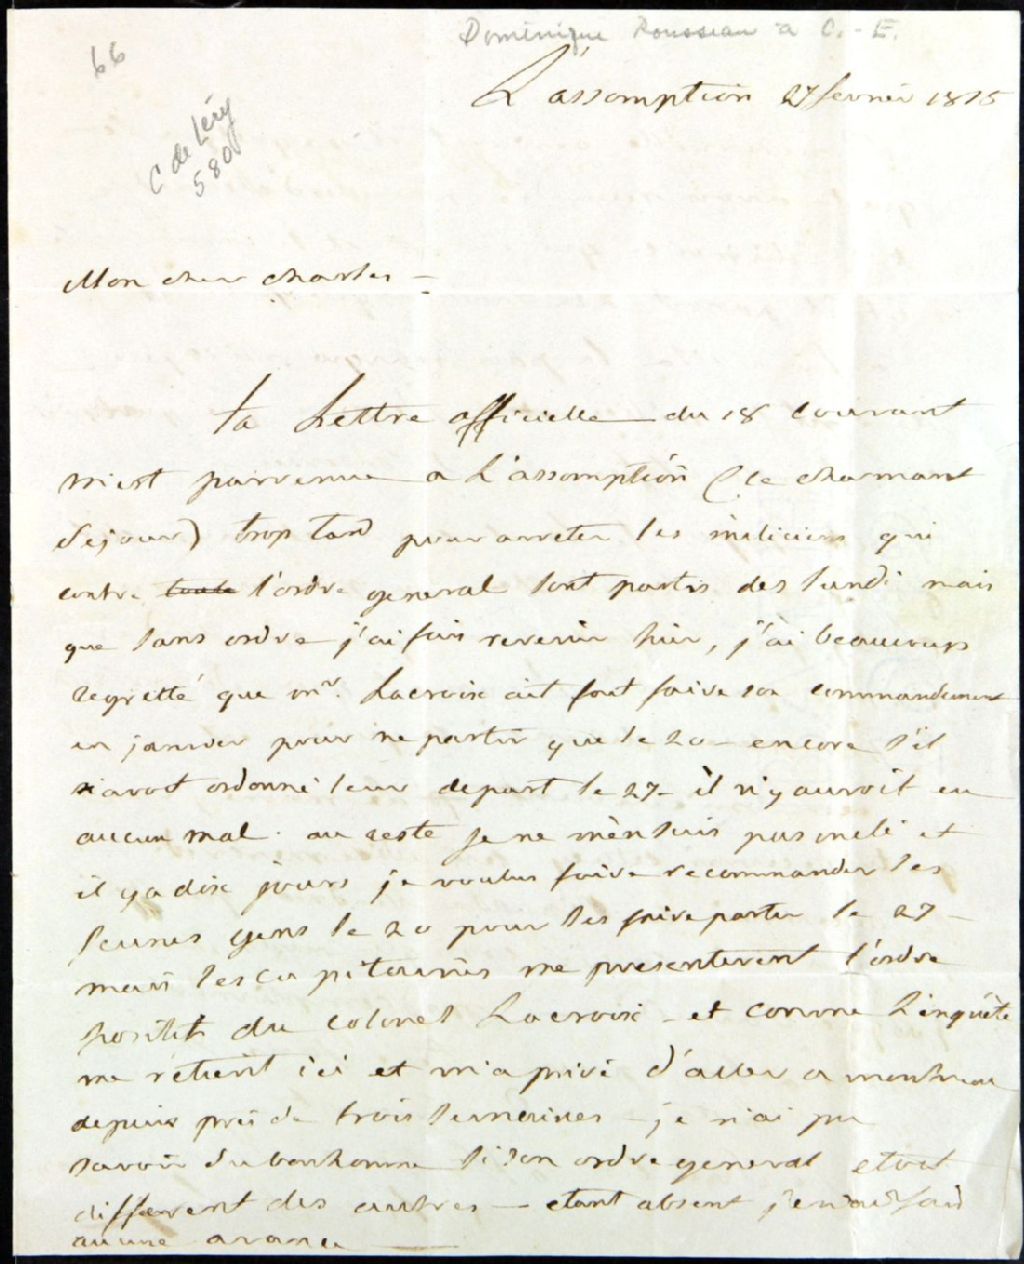 66
Dominique Rousseau à C.-E.
C de Léry
580
L'assomption 27 fevrier 1815
Mon cher Charles -
ta Lettre officielle du 18 courant
m'est parvenue a L'assomption (le charmant
Sejour) trop tard pour arreter les miliciens qui
contre toute l'ordre general sont partis des lundi mais
que sans ordre j'ai fais revenir hier, j'ai beaucoup
regretté que mr. Lacroix ait fait faire son commandement
en janvier pour ne partir que le 20 - encore s'il
n'avoit ordonné leur depart le 27 - il n'y auroit eu
aucun mal. au reste je ne m'en suis pas melé et
il y a dix jours je voulus faire recommander les
jeunes gens le 20 pour les faire partir le 27 -
mais les capitaines me presenterent l'ordre
positif du colonel Lacroix - et comme L'enquête
me retient ici et m'a privé d'aller a montreal
depuis près de trois semaines - je n'ai pu
savoir du bonhomme si son ordre general etoit
different des autres - etant absent j'en
aucune avance